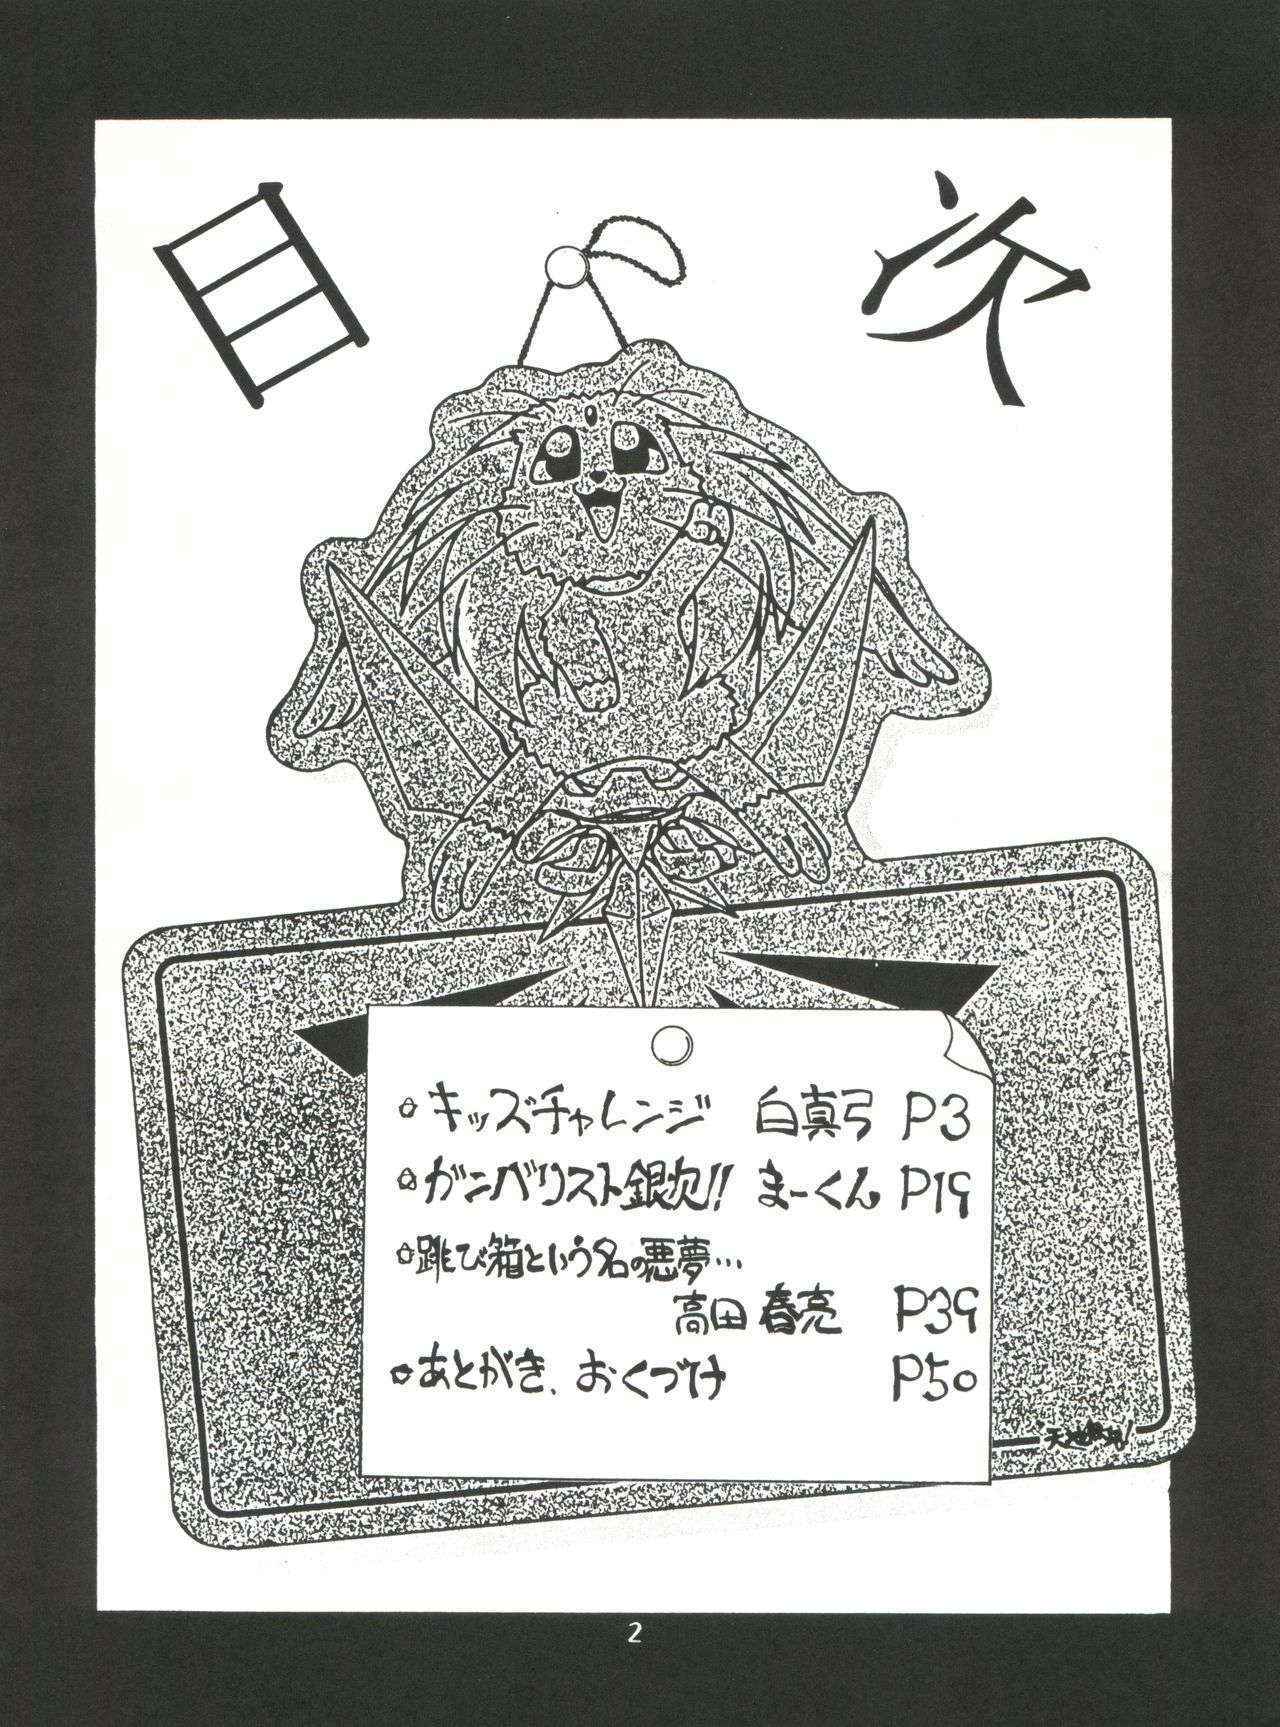 目次
キッズチャレンジ 白真弓 P3
ガンバリスト銀次!! まーくん P19
跳び箱という名の悪夢…
高田 春亮 P39
あとがき、おくづけ P50
2